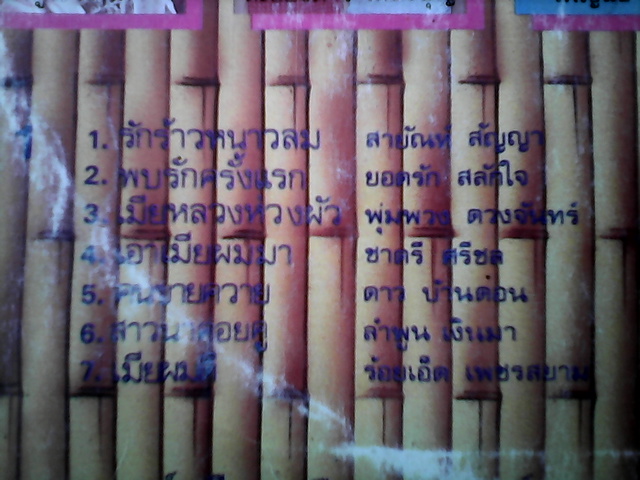 1. รักร้าวหนาวลม สายัณห์ สัญญา
2. พบรักครั้งแรก ยอดรัก สลักใจ
3. เมียหลวงหวงผัว พุ่มพวง ดวงจันทร์
4. เอาเมียผมมา ชาตรี ศรีชล
5. คนขายควาย ดาว บ้านดอน
6. สาวนาคอยคู่ ลำพูน เงินมา
7. เมียผมดี ร้อยเอ็ด เพชรสยาม